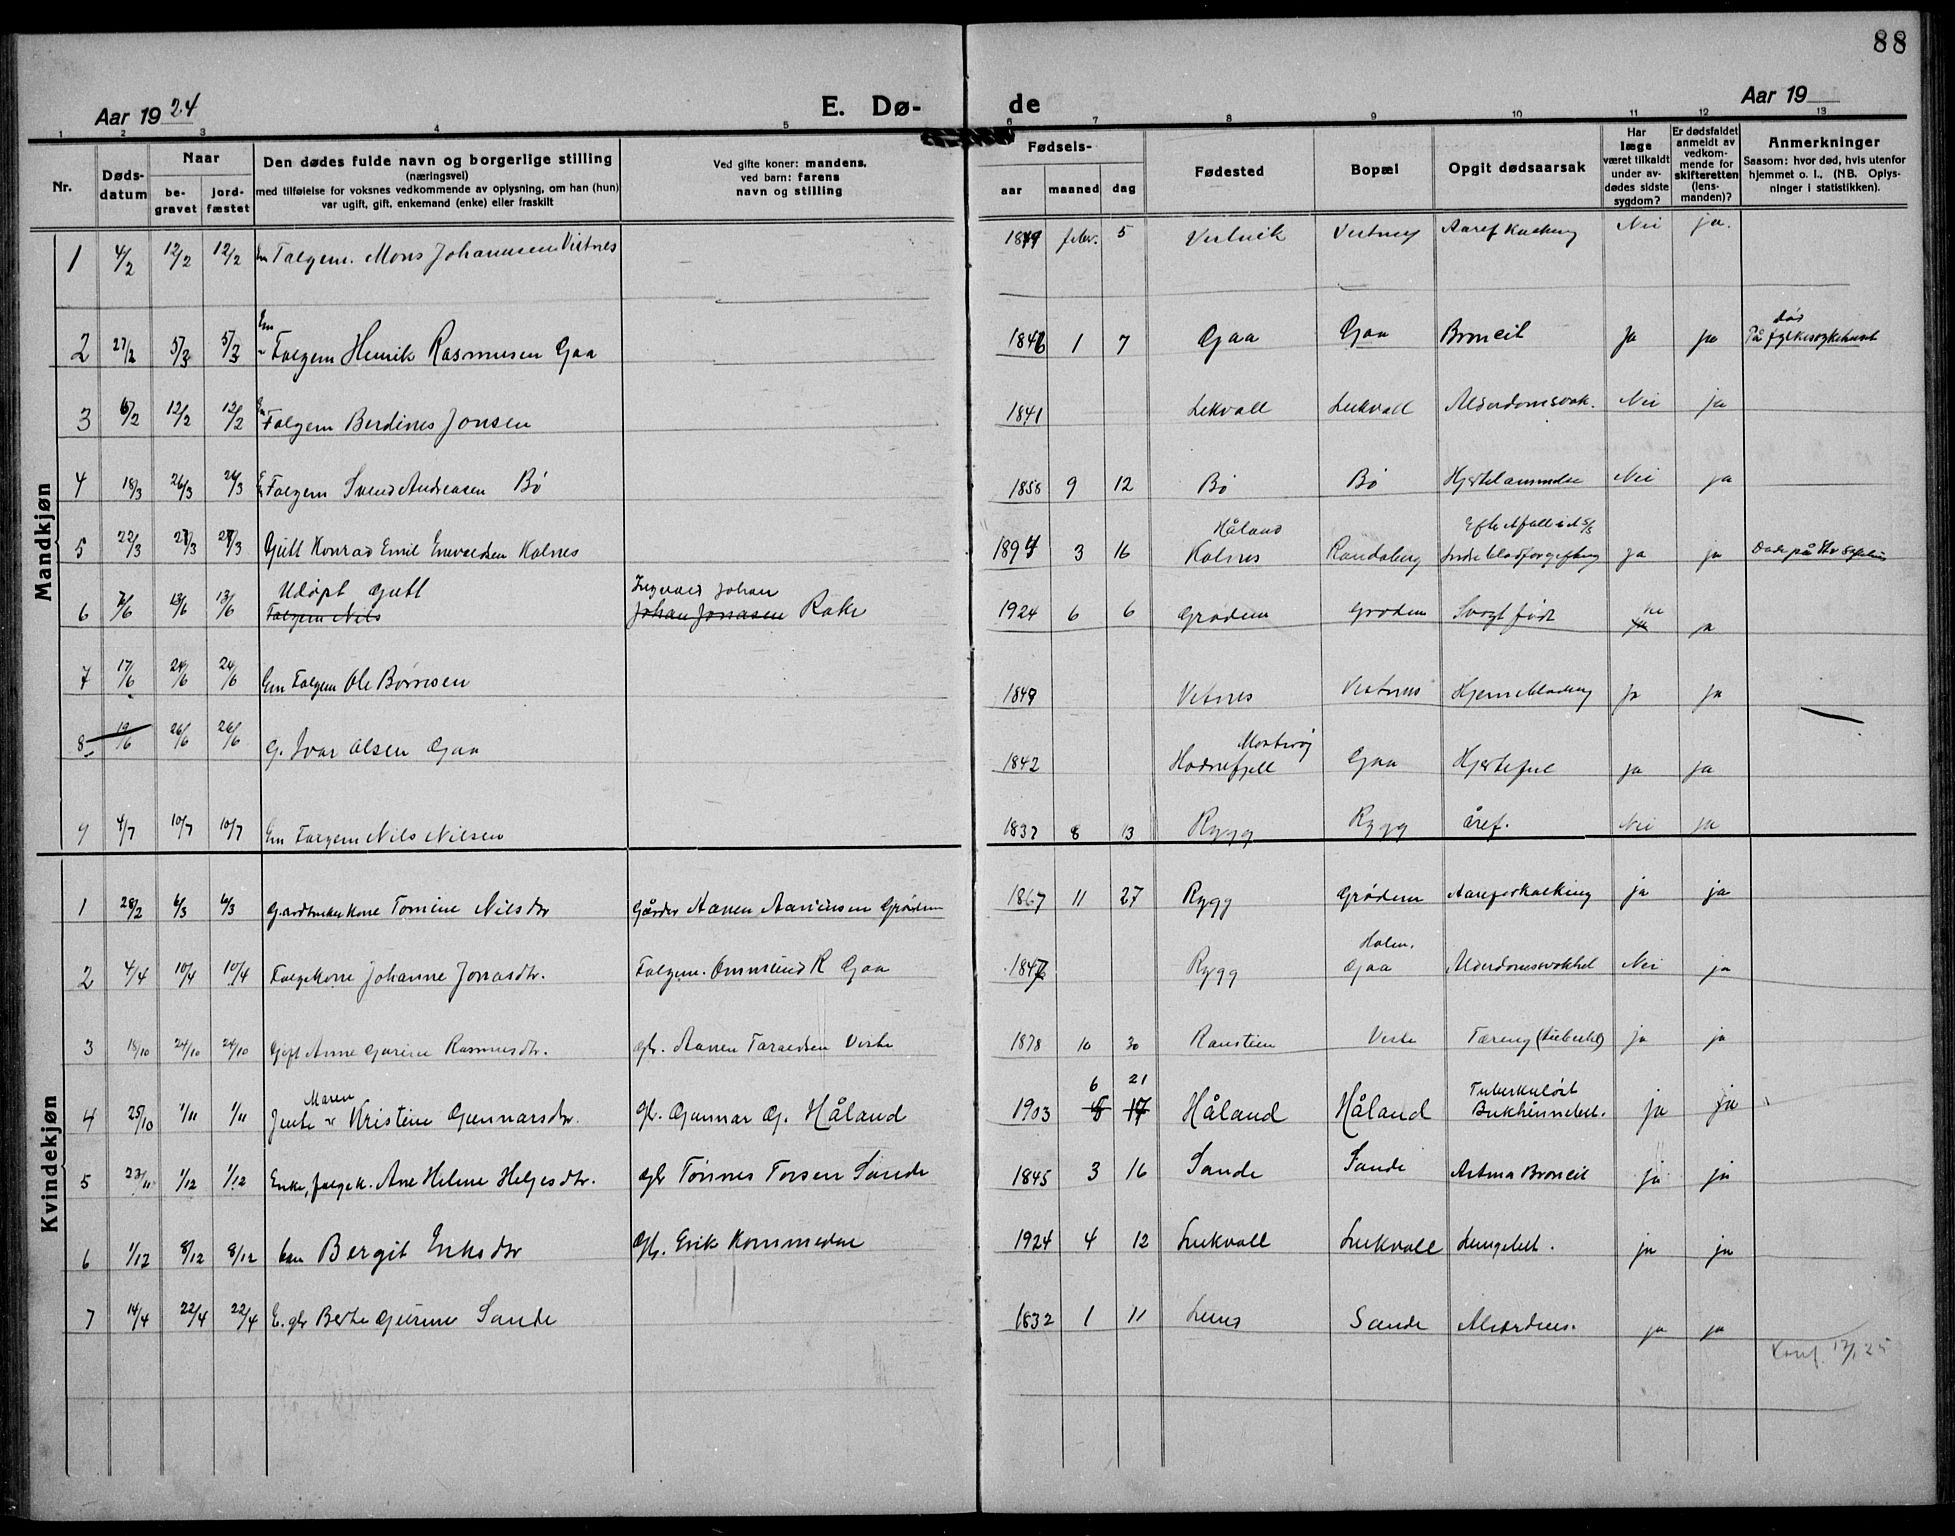 88
Aar 1924 E. Dø- de Aar 19
1 2 3 4 5 6 7 8 9 10 11 12 13
Nr.
Døds-
datum
Naar
be-
gravet
jord-
fæstet
Den dødes fulde navn og borgerlige stilling
(næringsvei)
med tilføielse for voksnes vedkommende av oplysning, om han (hun)
var ugift, gift, enkemand (enke) eller fraskilt
Ved gifte koner: mandens,
ved barn: farens
navn og stilling
Fødsels-
aar maaned dag
Fødested
Bopæl
Opgit dødsaarsak
Har
læge
været tilkaldt
under av-
dødes sidste
sygdom?
Er dødsfaldet
anmeldt av
vedkom-
mende for
skifteretten
(lens-
manden)?
Anmerkninger
Saasom: hvor død, hvis utenfor
hjemmet o. l.. (NB. Oplys-
ninger i statistikken).
Mandkjøn
1 4/2 12/2 12/2 Em Folgem. Mons Johannesen Vistnes 1849 febr. 5 Vistnes Nei ja.
2 27/2 5/3 5/3 Em Folgem Henrik Rasmusen Gaa 1846 1 7 Gaa Gaa Broncit ja ja død På fylkessykehuset
3 6/2 12/2 12/2 Em Folgem Berdines Jonsen 1841 Lekvall Leikvall Alderdomsvak. Nei ja
4 18/3 26/3 26/3 E Folgem Svend Andreasen Bø 1858 9 12 Bø Bø Hjertelammelse Nei ja
5 22/3 27/3 27/3 Gutt Konrad Emil Enevaldsen Kolnes 1894 3 16 Håland Kolnes Randaberg ja ja
6 7/6 13/6 13/6 Udøpt Gutt Folgem Nils Ingvald Johan Johan Jonasen Rake 1924 6 6 Grødem Grødem Svagt født ne ja
7 17/6 24/6 24/6 Em Folgem Ole Børresen 1849 Vistnes Vistnes Hjerneblødng ja ja
8 19/6 26/6 26/6 G. Ivar Olsen Gaa 1842 Mosterøy Hodnefjell Gaa Hjertefeil ja ja
9 4/7 10/7 10/7 Em Folgem Nils Nilsen 1837 8 13 Rygg Rygg åref. Nei ja
Kvindekjøn
1 28/2 6/3 6/3 Gaardbrukerkone Tomine Nilsdtr Gårdbr Aanen Aanensen Grødem 1867 11 27 Rygg Grødem Aareforkalking ja ja
2 4/4 10/4 10/4 Folgekone Johanne Jonasdtr. Folgem. Ommund R Gaa 1847 Rygg Holm. Gaa Alderdomssvakhet Nei ja
3 18/10 24/10 24/10 Gift Anne Gurine Rasmusdtr. gbr. Aanen Taraldsen Viste 1878 10 30 Viste Tæring (tuberkl) ja ja
4 25/10 1/11 1/11 Jente Maren Kristine Gunnarsdtr. gbr. Gunnar G. Håland 1903 6 8 21 17 Håland Håland Tuberkuløst Bukhinnebet. ja ja
5 23/11 1/12 1/12 Enke, folgek. Ane Helene Helgesdtr. gbr Tønnes Torsen Sande 1845 3 16 Sande Sande Astma Broncit ja ja
6 1/12 8/12 8/12 barn Bergit Eriksdtr Gbr. Erik Kommedal 1924 4 12 Leikvoll Leikvoll Lungebet. ja ja
7 14/4 22/4 22/4 E. gbr Berte Gurine Sande 1832 1 11 Sande Alderdoms. ja ja
Konf. 17/1 25